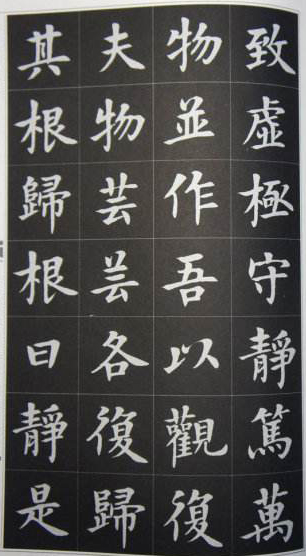 致虛極守靜篤萬
物並作吾以觀復
夫物芸芸各復歸
其根歸根曰靜是